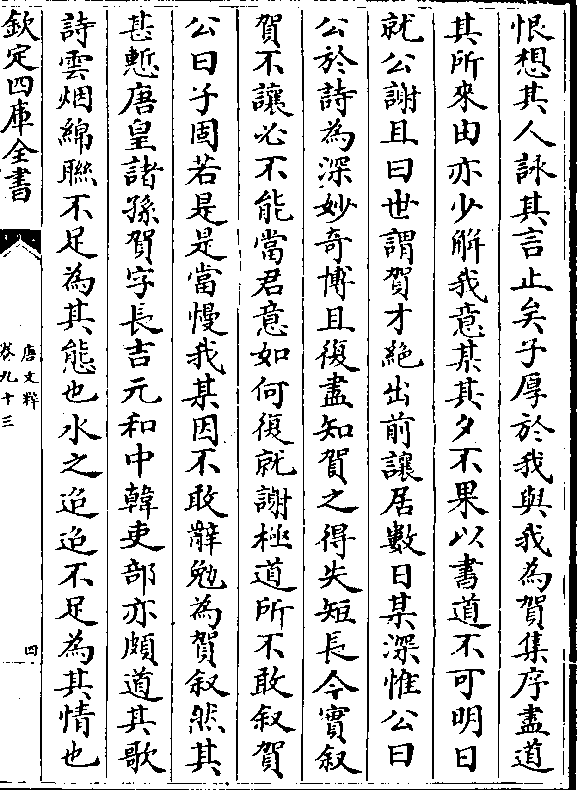 恨想其人詠其言止矣子厚於我與我為賀集序盡道
其所來由亦少解我意某其夕不果以書道不可明日
就公謝且曰世謂賀才絶出前讓居數日某深惟公曰
公於詩為深妙奇博且復盡知賀之得失短長今實叙
賀不讓必不能當君意如何復就謝極道所不敢叙賀
公曰子固若是是當慢我某因不敢辭勉為賀叙然其
甚慙唐皇諸孫賀字長吉元和中韓吏部亦頗道其歌
詩雲烟綿聮不足為其態也水之迢迢不足為其情也
欽定四庫全書
唐文粹
卷九十三
四